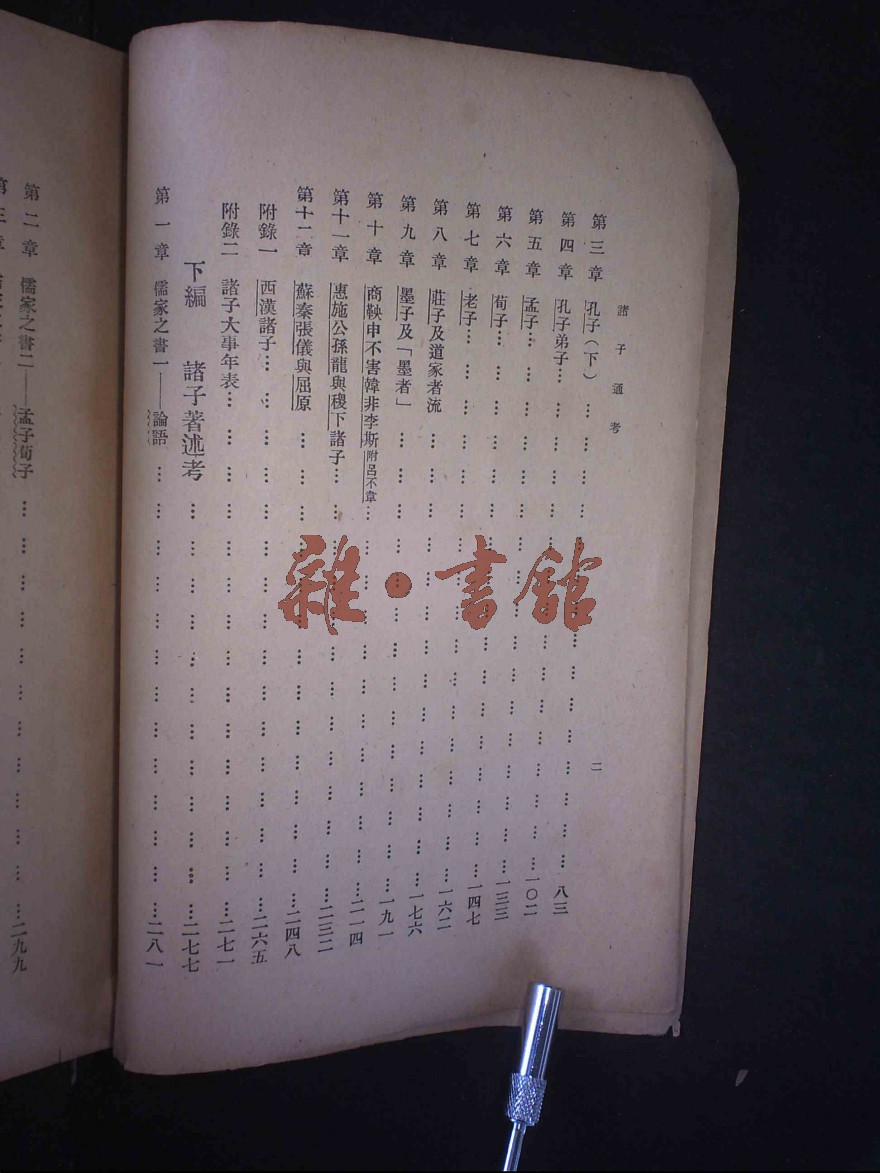 諸子通考
二
第三章 孔子(下)………………………………八三
第四章 孔子弟子………………………………一〇二
第五章 孟子………………………………一三三
第六章 荀子………………………………一四七
第七章 老子………………………………一六二
第八章 莊子及道家者流………………………………一七六
第九章 墨子及「墨者」………………………………一九一
第十章 商鞅申不害韓非李斯附呂不韋………………………………二一四
第十一章 惠施公孫龍與稷下諸子………………………………二三二
第十二章 蘇秦張儀與屈原………………………………二四八
附錄一 西漢諸子………………………………二六五
附錄二 諸子大事年表………………………………二七一
下編 諸子著述考………………………………二七七
第一章 儒家之書一——論語………………………………二八一
第二章 儒家之書二——孟子荀子………………………………二九九
雜·書館